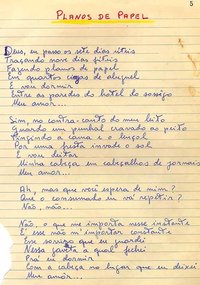 5
PLANOS DE PAPEL
Deus, eu passo os sete dias úteis
Traçando nove dias fúteis
Fazendo planos de papel
Em quartos cegos de aluguel
E vou dormir
Entre as paredes do hotel do sossego
Meu amor...
Sim, no contra-canto do meu leito
Guardo um punhal cravado no peito
a cama e o lençol
Por uma fresta invade o sol
E vou deitar
Minha cabeça em cabeçalhos de jornais
Meu amor...
Ah, mas que você espera de mim?
Que o consumado eu vá repetir?
Não, não...
Não, o que me importa nesse instante
É esse não m'importar constante
Esse sossego que eu guardei
Nessa gaveta a qual fechei
Pra eu dormir
Com a cabeça no lugar que eu deixei
Meu amor...